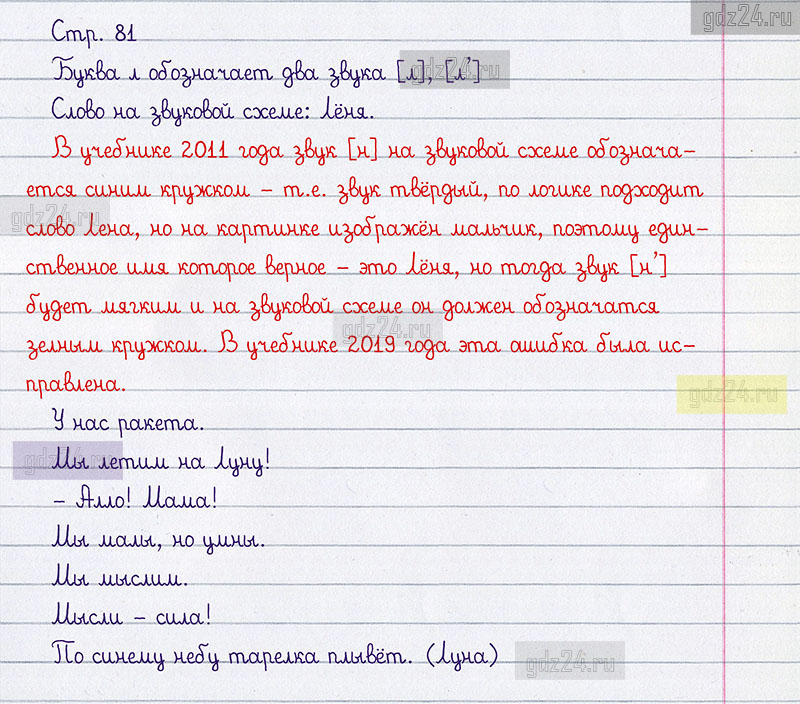 gdz24.ru
Стр. 81
Буква л обозначает два звука [л], [л’]
gdz24.ru
Слово на звуковой схеме: Лёня.
В учебнике 2011 года звук [н] на звуковой схеме обознача-
ется синим кружком – т.е. звук твёрдый, по логике подходит
gdz24.ru
слово Лена, но на картинке изображён мальчик, поэтому един-
ственное имя которое верное – это Лёня, но тогда звук [н’]
будет мягким и на звуковой схеме он должен обозначатся
gdz24.ru
зелным кружком. В учебнике 2019 года эта ашибка была ис-
правлена.
gdz24.ru
У нас ракета.
Мы летим на Луну!
gdz24.ru
– Алло! Мама!
Мы малы, но умны.
Мы мыслим.
Мысли – сила!
По синему небу тарелка плывёт. (Луна)
gdz24.ru